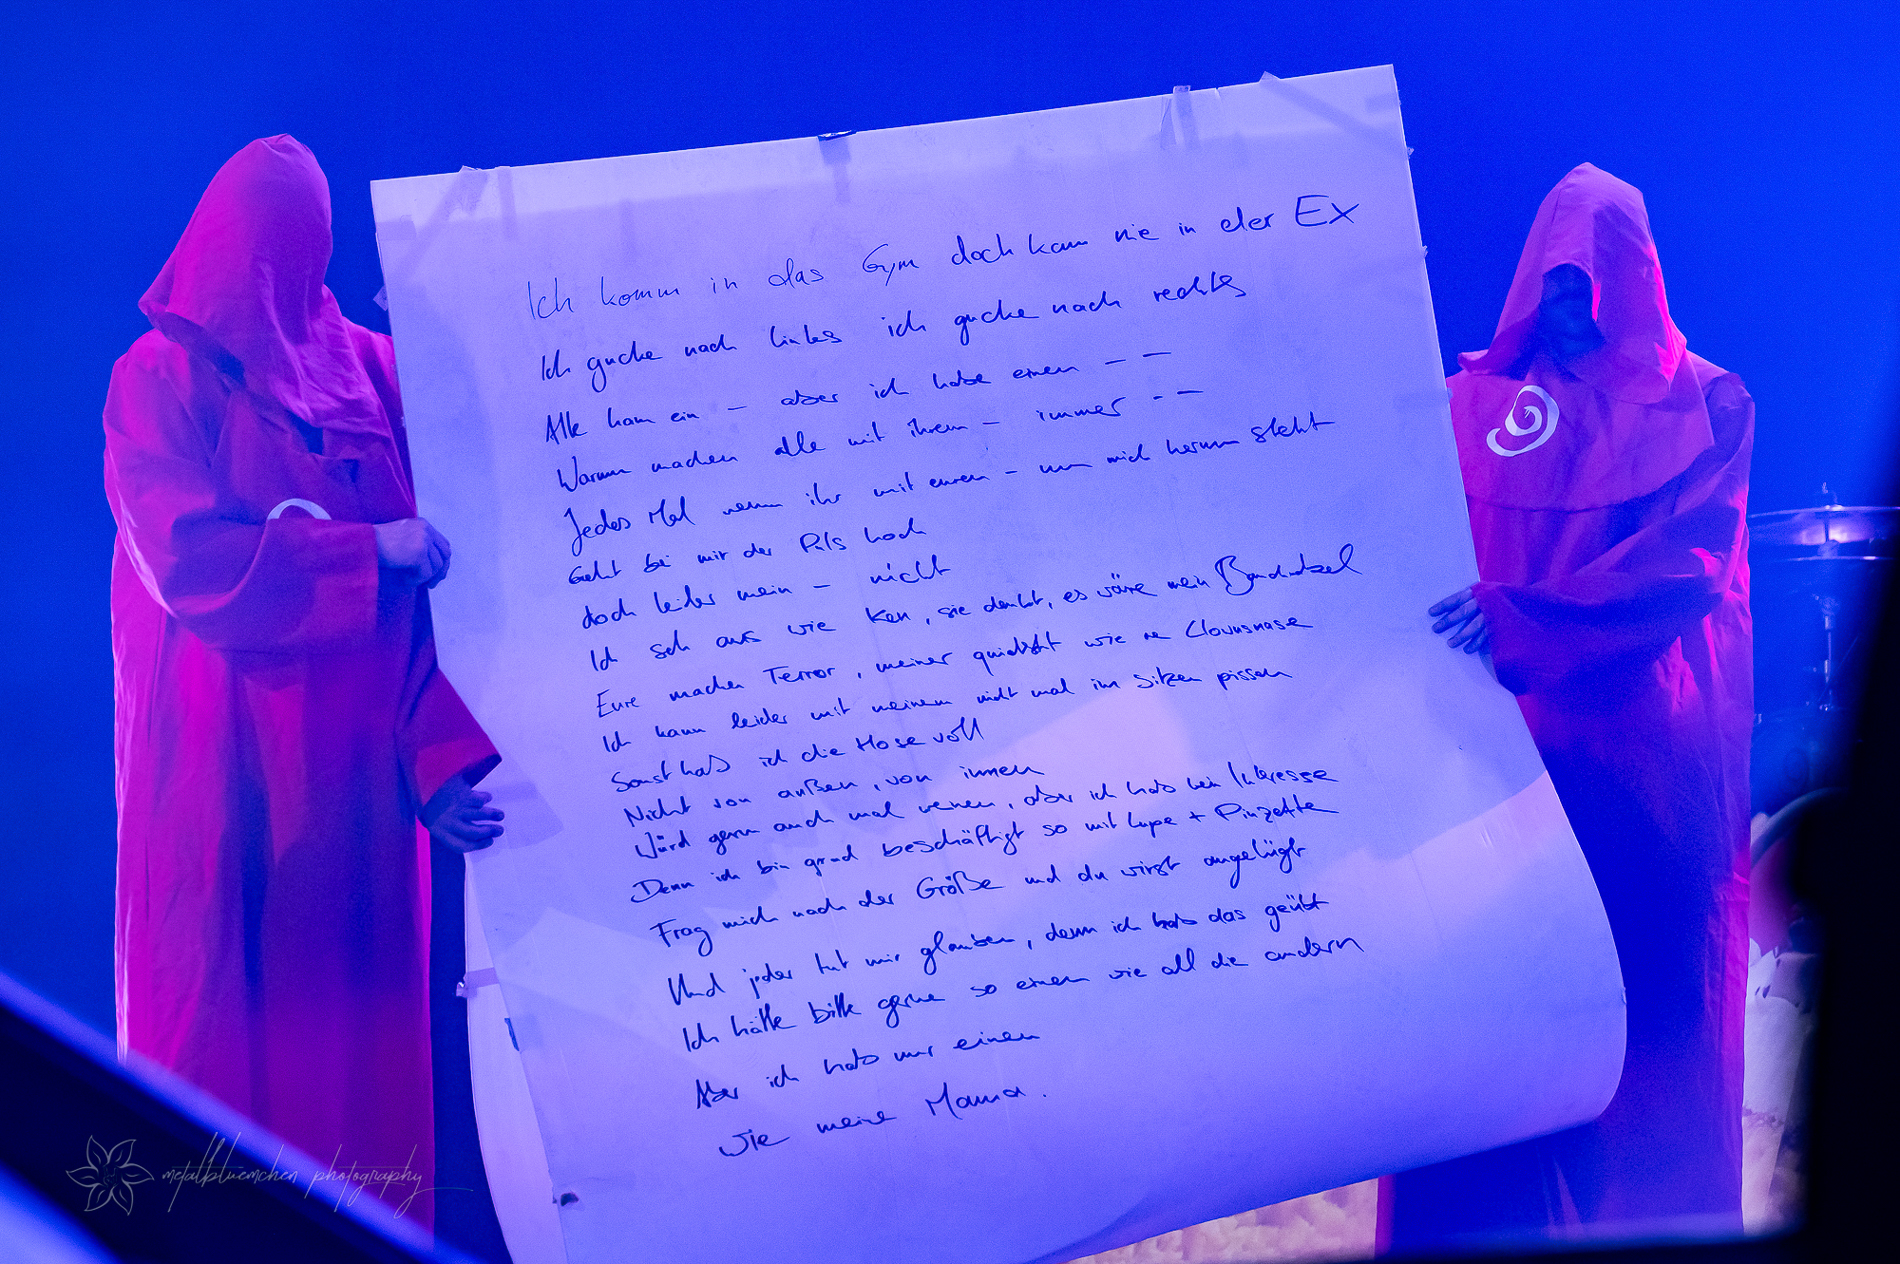 Ich komm in das Gym doch kam nie in der Ex
Ich gucke nach links ich gucke nach rechts
Alle ham ein – aber ich habe einen – –
Warum machen alle mit ihrem – immer - –
Jedes Mal wenn ihr mit euren – um mich herum steht
Geht bei mir der Puls hoch
doch leider mein – nicht
Ich seh aus wie Ken, sie denkt, es wäre mein Bauchnabel
Eure machen Terror, meiner quietscht wie ne Clownsnase
Ich kann leider mit meinem nicht mal im Sitzen pissen
Sonst hab ich die Hose voll
Nicht von außen, von innen
Würd gern auch mal, aber ich hab kein Interesse
Denn ich bin grad beschäftigt so mit Lupe + Pinzette
Frag mich nach der Größe und du wirst angelügt
Und jeder tut mir glauben, denn ich hab das geübt
Ich hätte bitte gerne so einen wie all die andern
Aber ich hab nur einen
wie meine Mama.
metalbluemchen photography